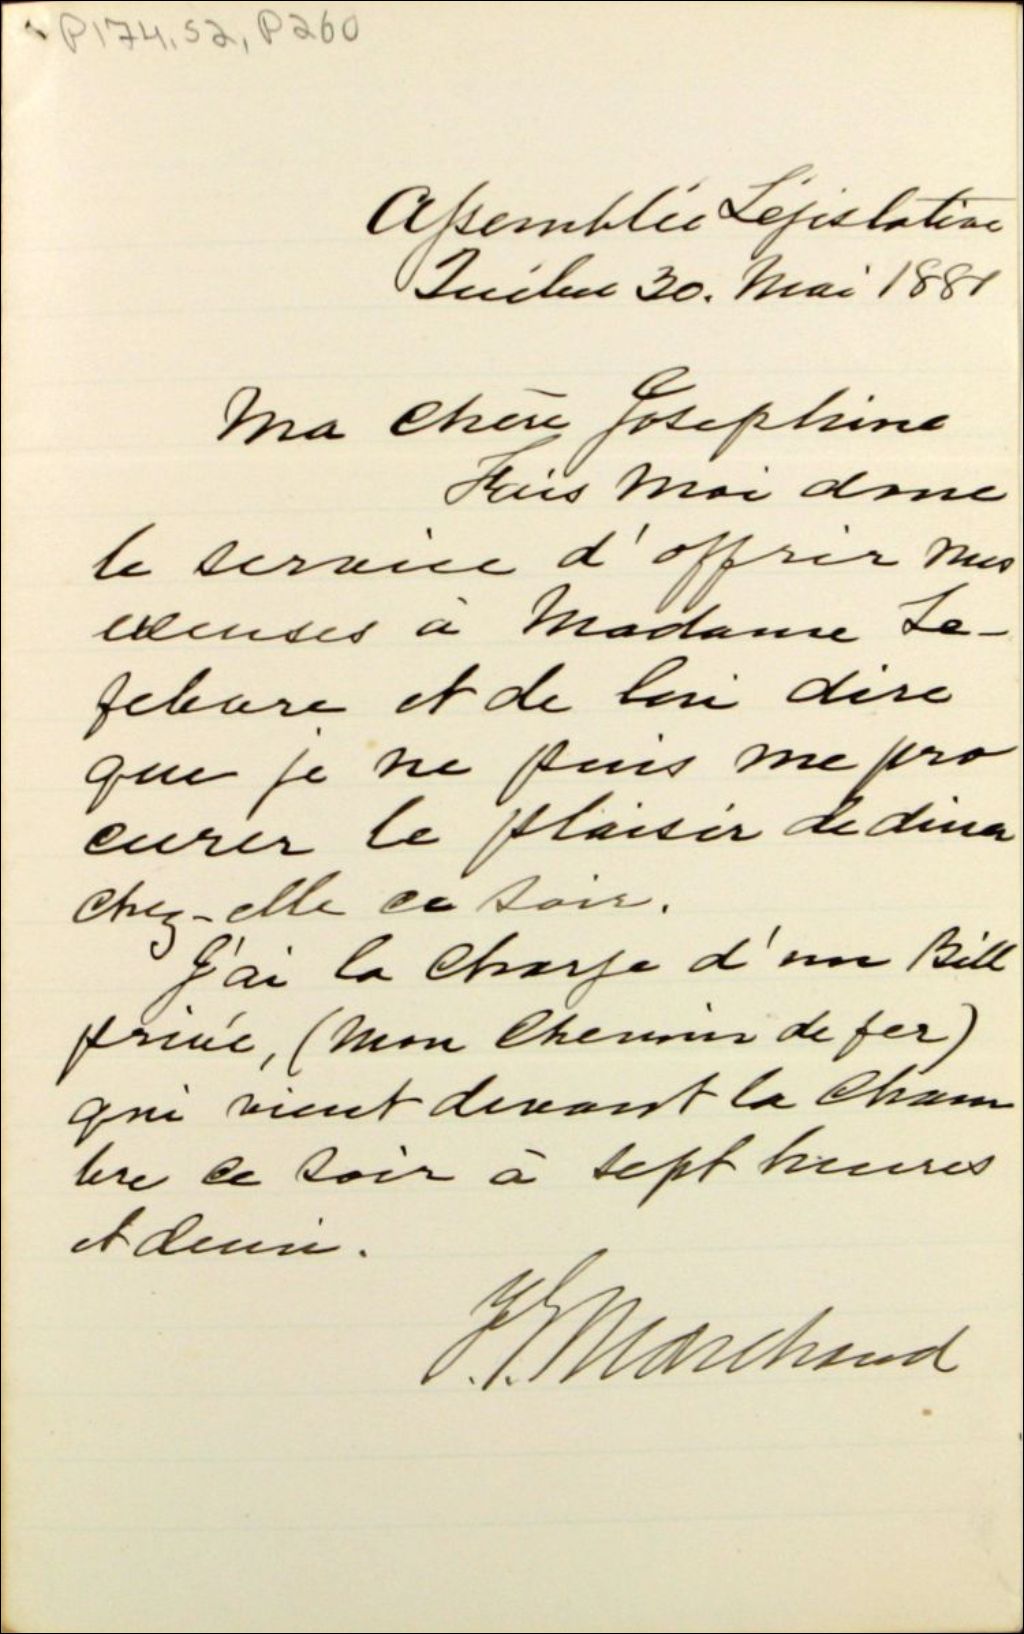 P174,S2,P260
Assemblée Législative
Québec 30. Mai 1881
Ma chère Josephine
Fais moi donc
le service d'offrir mes
excuses à Madame Le-
febvre et de lui dire
que je ne puis me pro
curer le plaisir de diner
chez-elle ce soir.
J'ai la charge d'un Bill
privé, (mon chemin de fer)
qui vient devant la Cham
bre ce soir à sept heures
et demi.
F. G. Marchand